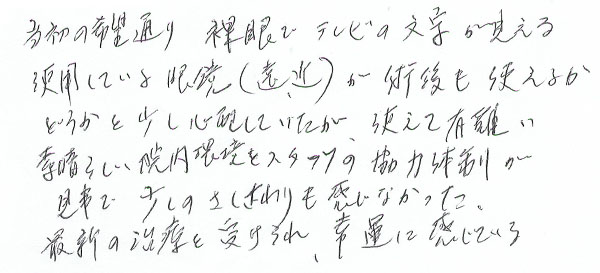 当初の希望通り 裸眼でテレビの文字が見える
使用している眼鏡(遠、近)が術後も使えるか
どうかと少し心配していたが、使えて有難い
素晴らしい院内環境とスタッフの協力体制が
見事で 少しのさしさわりも感じなかった。
最新の治療を受けられ、幸運に感じている